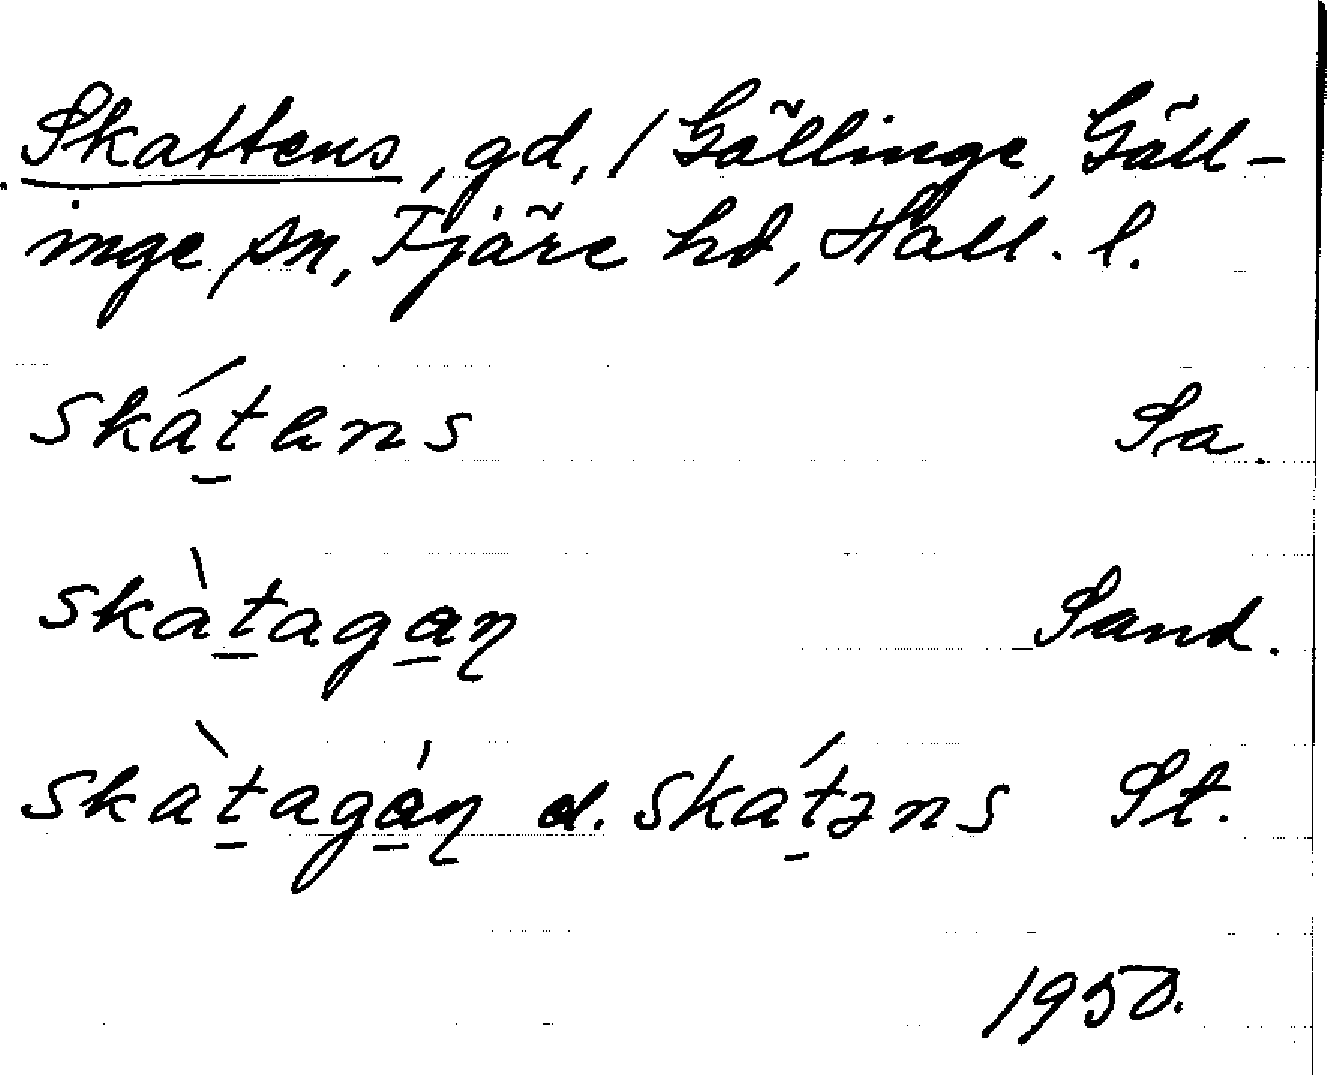 Skattens, gd, / Gällinge, Gäll-
inge sn, Fjäre hd, Hall. l.
skát̠ɐns Sa.
skàt̠aga̠ꞃ Sand.
skàt̠agá̠ꞃ d. skát̠əns St.
1950.